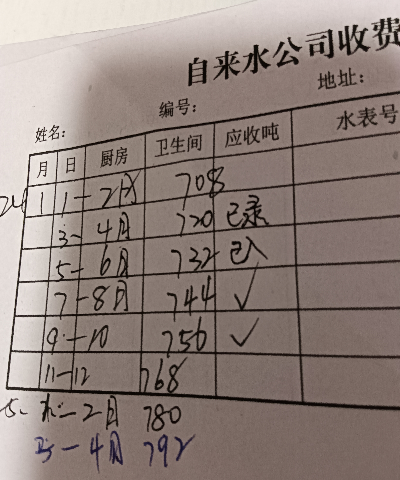 自来水公司收费
编号: 地址:
姓名:
月 日 厨房 卫生间 应收吨 水表号
24 1 1-2月 708
3-4月 720 已录
5-6月 732 已入
7-8月 744 ✓
9-10 756 ✓
11-12 768
一2月 780
3-4月 792